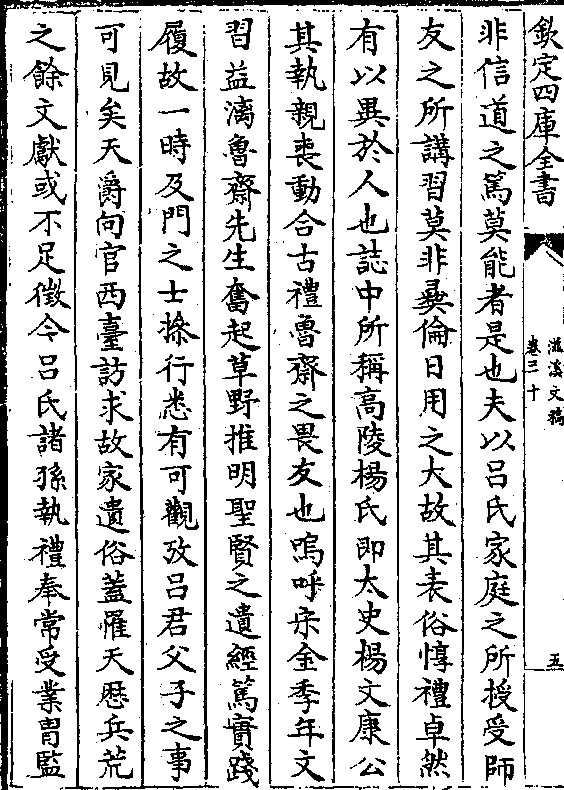 欽定四庫全書
滋溪文稿
卷三十
五
非信道之篤莫能者是也夫以呂氏家庭之所授受師
友之所講習莫非彞倫日用之大故其表俗惇禮卓然
有以異於人也誌中所稱高陵楊氏即太史楊文康公
其執親喪動合古禮魯齋之畏友也嗚呼宋金季年文
習益漓魯齋先生奮起草野推明聖賢之遺經篤實踐
履故一時及門之士操行悉有可觀攷呂君父子之事
可見矣天爵向官西臺訪求故家遺俗蓋罹天厯兵荒
之餘文獻或不足徵今呂氏諸孫執禮奉常受業胄監